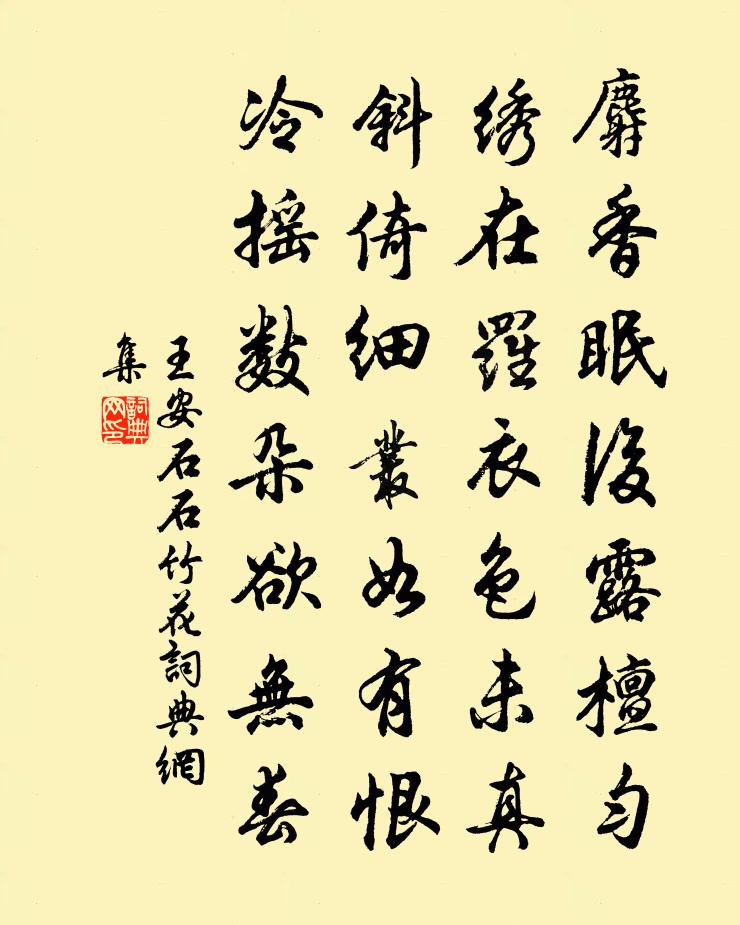 麝香眠後露檀勻
綉在羅衣色未真
斜倚細叢如有恨
冷摇數朵欲無春
王安石石竹花詞典網
集
詞典网印